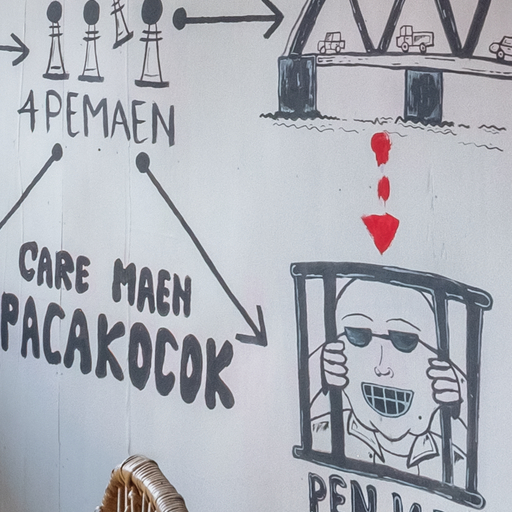 4 PEMAEN
CARE MAEN
PACAKOCOK